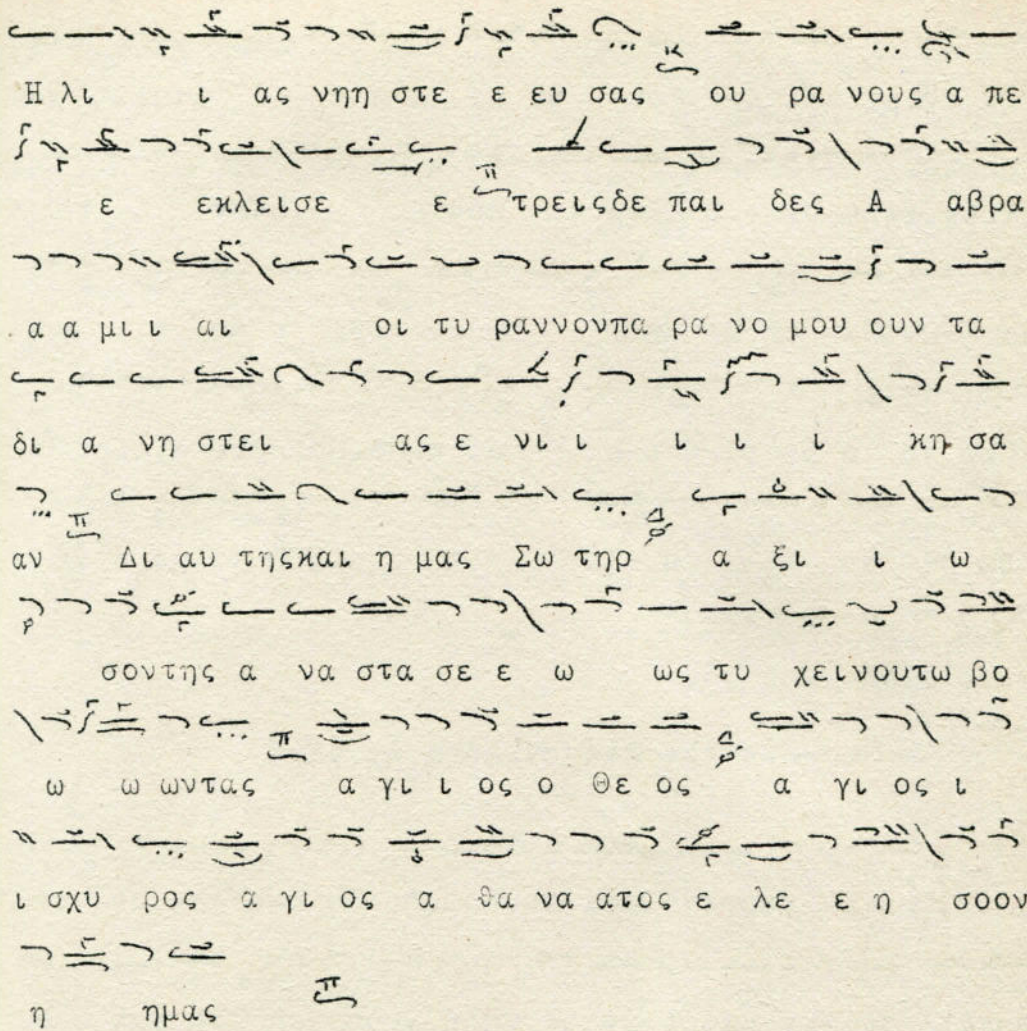 Η λι ι ας νηη στε ε ευ σας ου ρα νους α πε
ε εκλεισε ε τρειςδε παι δες Α αβρα
α α μι ι αι οι τυ ραννονπα ρα νο μου ουν τα
δι α νη στει ας ε νι ι ι ι ι κη σα
αν Δι αυ τηςκαι η μας Σω τηρ α ξι ι ω
σοντης α να στα σε ε ω ως τυ χεινουτω βο
ω ω ωντας α γι ι ος ο Θε ος α γι ος ι
ι σχυ ρος α γι ος α θα να ατος ε λε ε η σοον
η ημας